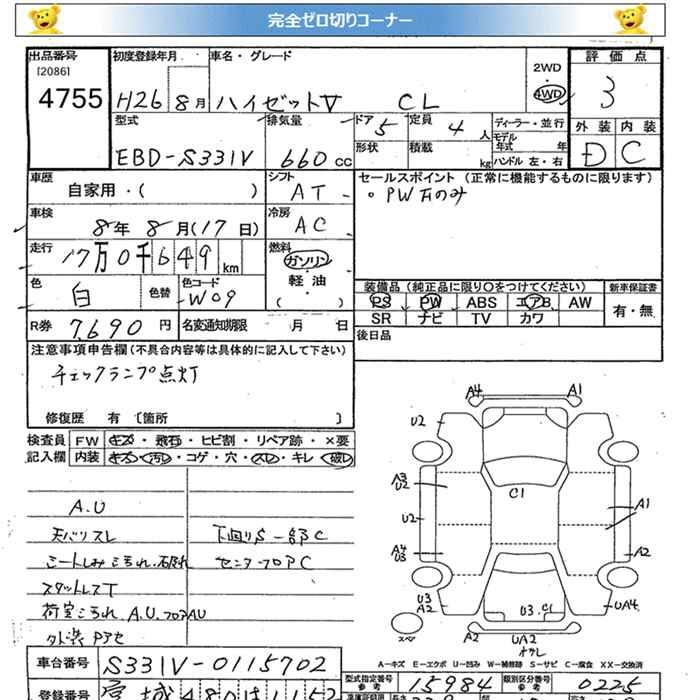 完全ゼロ切りコーナー
出品番号 初度登録年月 車名・グレード 2WD 4WD 評価点
[2086]
4755 H26 8月 ハイゼットV CL 3
型式 排気量 ドア 5 定員 4 人 ディーラー・並行 外装 内装
EBD-S331V 660 cc 形状 積載 kg モデル年式 年 ハンドル 左・右 D C
車歴 シフト セールスポイント (正常に機能するものに限ります)
自家用・( ) AT 。PWガのみ
車検 8年 8月(17日) 冷房 AC
走行 17万0千649 km 燃料 ガソリン 軽油 ( )
色 白 色替 色コード W09
装備品(純正品に限り○をつけてください) 新車保証書
PS PW ABS エアB AW 有・無
SR ナビ TV カワ
R券 7,690円 名変通知期限 月 日 後日品
注意事項申告欄(不具合内容等は具体的に記入して下さい)
チェックランプ点灯
修復歴 有 [箇所 ]
検査員 FW キズ・飛石・ヒビ割・リペア跡・×要
記入欄 内装 キズ・汚レ・コゲ・穴・スレ・キレ・破レ
A.U
天バリスレ 下回りS一部C
シートしみこヨゴレ センターフロアC
スタットレスT
荷室こヨゴレ A.U.フロアAU
外装Pアセ
A4 A1
U2
C1
A3 U2 A1
U2
A4 U3 A2
U3 A2 U3 C1 UA4
スペア A2 UA2
A-キズ E-エクボ U-凹み W-補修跡 S-サビ C-腐食 XX-交換済
車台番号 S331V-0115702
型式指定番号 参考 15984 類別区分番号 参考 0225
登録番号 宮城480